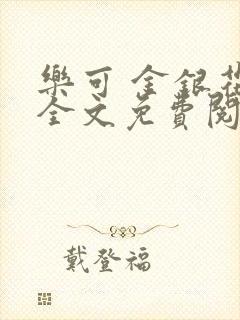 樂可 金銀花
全文免費閱
戴登福